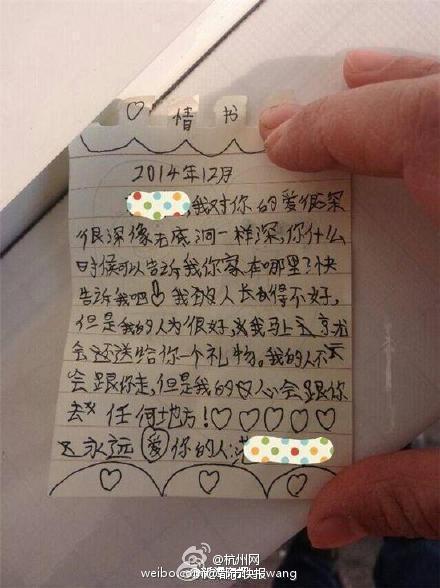 ♡情书
2014年12月
我对你的爱很深
很深像无底洞一样深,你什么
时候可以告诉我你家在哪里?快
告诉我吧!我的人长得不好,
但是我的人为很好,我马上
会还送给你一个礼物。我的人不
会跟你走,但是我的心会跟你
去任何地方!♡♡♡♡♡
永远爱你的人:
杭州网
weibo.com
都市快报
wang